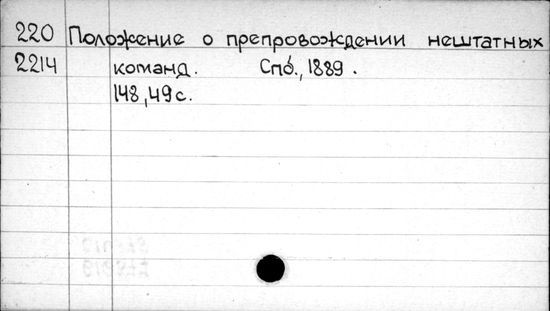 220 Положение о препровождении нештатных
2214 команд. Спб., 1889.
148, 49 с.